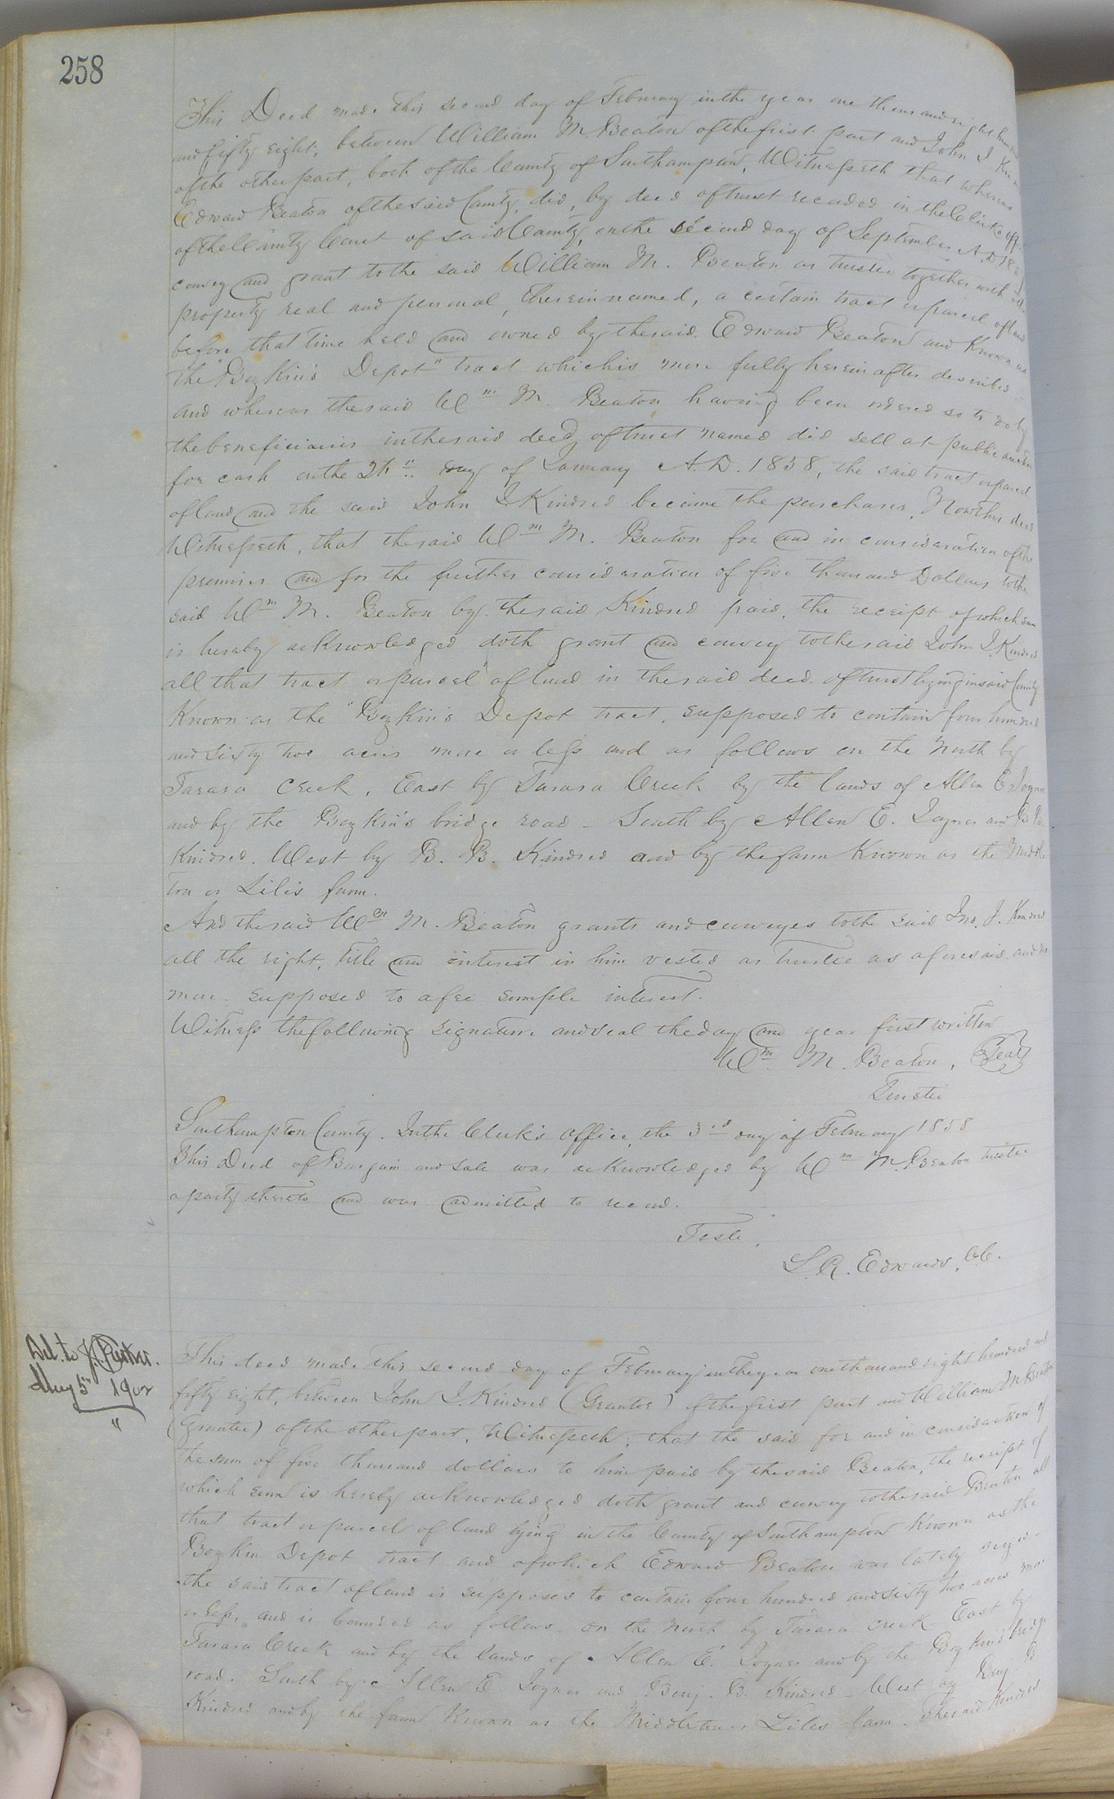 258
This Deed made this second day of February in the year one thousand eight
and fifty eight, between William M Beaton of the first part and John J.
of the other part, both of the County of Southampton, Witnesseth that whereas
Edward Beaton of the said County, did, by deed of trust recorded in the Clerk's
of the County Court of said County, on the second day of September A.D.
convey and grant to the said William M. Beaton as trustee together with
property real and personal, therein named, a certain tract or parcel of land
before that time held and owned by the said Edward Beaton and Known as
the "Boykin's Depot" tract which is more fully herein after described
and whereas the said Wm M. Beaton having been so to do by
the beneficiaries in the said deed of trust named did sell at public auction
for cash on the day of January A.D. 1858, the said tract or parcel
of land and the said John J Kindred became the purchaser, Now this deed
Witnesseth, that the said Wm M. Beaton for and in consideration of the
premises and for the further consideration of five thousand Dollars to the
said Wm M. Beaton by the said Kindred paid, the receipt of which sum
is hereby acknowledged doth grant and convey to the said John J. Kindred
all that tract or parcel of land in the said deed of trust lying in said County
Known as the "Boykin's Depot tract, supposed to contain four hundred
and sixty two acres more or less and as follows on the North by
Tarara Creek, East by Tarara Creek by the lands of Allen E. Joyner
and by the Boykin's bridge road - South by Allen E. Joyner and
Kindred. West by B. B. Kindred and by the farm Known as the Middle
ton or Lilis farm.
And the said Wm M. Beaton grants and conveyes to the said Jno. J. Kindred
all the right, title and interest in him vested as trustee as aforesaid and no
more - supposed to a fee simple interest.
Witness the following signature and seal the day and year first written
Wm M. Beaton, Seal
Trustee
Southampton County. In the Clerk's office, the 3rd day of February 1858
This Deed of Bargain and sale was acknowledged by Wm M. Beaton trustee
a party thereto and was admitted to record.
Teste,
L. R. Edwards, C.C.
Del. to J.
5th 1902
"
This deed made this second day of February in the year one thousand eight hundred and
fifty eight, between John J. Kindred (Grantor) of the first part and William M Beaton
(Grantee) of the other part, Witnesseth, that the said for and in consideration of
the sum of five thousand dollars to him paid by the said Beaton, the receipt of
which sum is hereby acknowledged doth grant and convey to the said Beaton all
that tract or parcel of land lying in the County of Southampton Known as the
Boykin Depot tract and of which Edward Beaton was lately
the said tract of land is supposed to contain four hundred and sixty two acres more
or less, and is bounded as follows on the North by Tarara Creek East by
Tarara Creek and by the lands of Allen E. Joyner and by the Boykins bridge
road. South by Allen E Joyner and Benj. B. Kindred - West by Benj B
Kindred and by the farm Known as the Middleton or Liles farm. The said Kindred